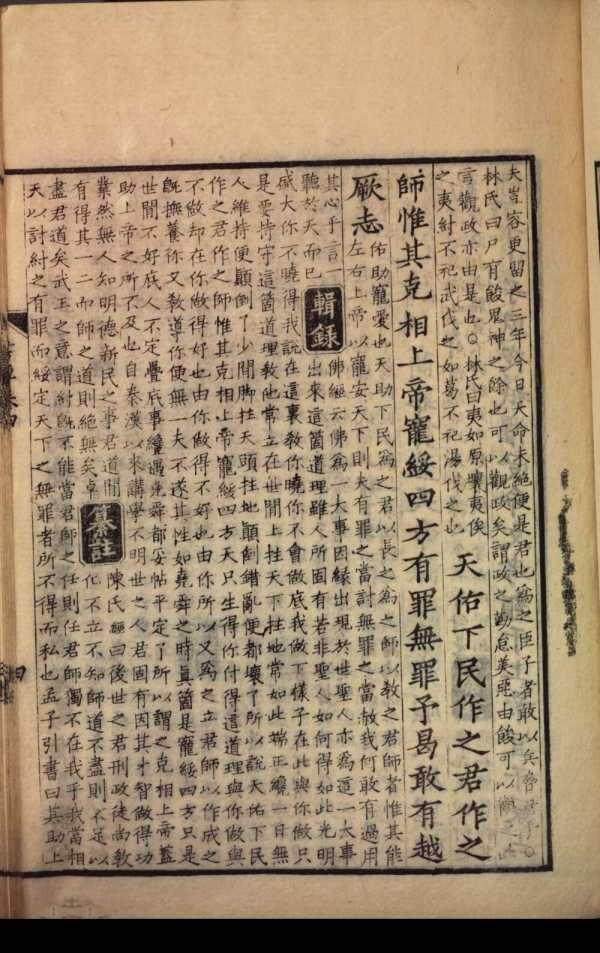 夫豈容更留之三年今日天命未絶便是君也為之臣子者敢以兵脅
林氏曰尸有餕鬼神之餘也可以觀政矣謂政之勤怠美惡由餕可以
言觀政亦由是也○林氏曰夷如原壤夷俟
之夷紂不祀武伐之如葛不祀湯伐之也
天佑下民作之君作之
師惟其克相上帝寵綏四方有罪無罪予曷敢有越
厥志
佑助寵愛也天助下民為之君以長之為之師以教之君師者惟其能
左右上帝以寵安天下則夫有罪之當討無罪之當赦我何敢有過用
其心乎言一
聽於天而已
輯錄
佛經云佛為一大事因緣出現於世聖人亦為這一大事
出來這箇道理雖人所固有若非聖人如何得如此光明
盛大你不曉得我說在這裏教你曉你不會做底我做下樣子在此與你做只
是要持守這箇道理教他常立在世間上拄天下拄地常如此端正纔一日無
人維持便顛倒了少間脚拄天頭拄地顛倒錯亂便都壞了所以說天佑下民
作之君作之師惟其克相上帝寵綏四方天只生得你付得這道理與你做與
不做却在你做得好也由你做得不好也由你所以又為之立君師以作成之
旣撫養你又教導你便無一夫不遂其性如堯舜之時真箇是寵綏四方只是
世間不好底人不定疊底事纔遇堯舜都妥帖平定了所以謂之克相上帝蓋
助上帝之所不及也自秦漢以來講學不明世之人君固有因其才智做得功
業然無人知明德新民之事君道間
有得其一二而師之道則絶無矣卓
纂註
陳氏經曰後世之君刑政徒尚教
化不立不知師道不盡則不足以
盡君道矣武王之意謂紂旣不能當君師之任則任君師獨不在我乎我當相
天以討紂之有罪而綏定天下之無罪者所不得而私也孟子引書曰其助上